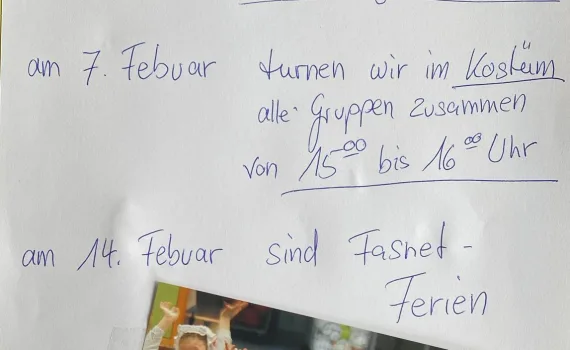 am 7. Febuar turnen wir im Kostüm
alle Gruppen zusammen
von 15⁰⁰ bis 16⁰⁰ Uhr
am 14. Febuar sind Fasnet-
Ferien